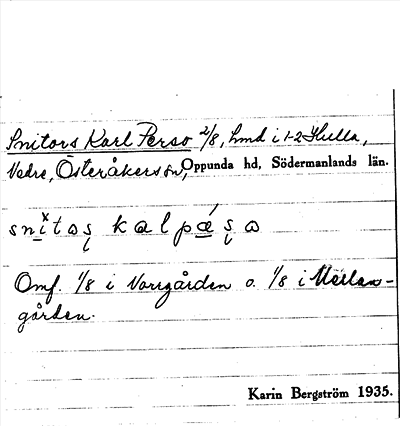 Snitors Karl Perso 2/8, hmd i 1-2 Hulla,
Vedre, Österåkers sn, Oppunda hd, Södermanlands län.
Omf. 1/8 i Norrgården o. 1/8 i Mellan-
gården.
Karin Bergström 1935.